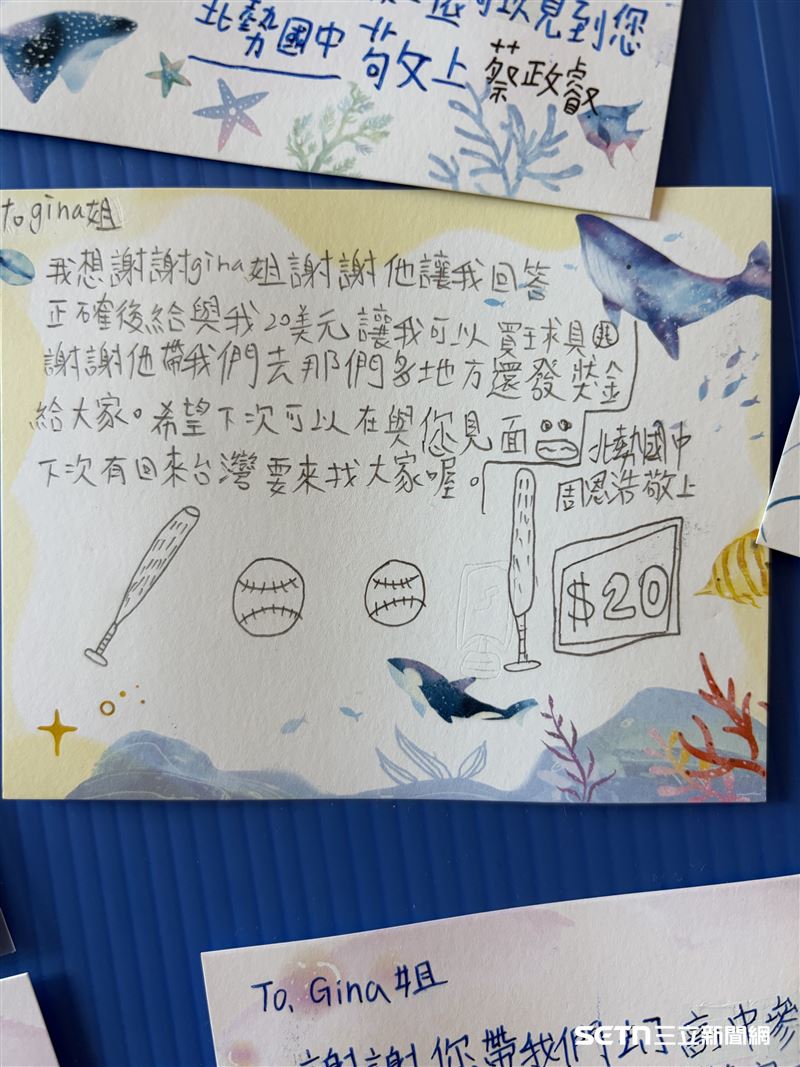 可以見到您
北勢國中 敬上 蔡政叡
to gina姐
我想謝謝gina姐謝謝他讓我回答
正確後給與我20美元讓我可以買球具
謝謝他帶我們去那們多地方還發獎金
給大家。希望下次可以在與您見面
下次有回來台灣要來找大家喔。
北勢國中
周恩浩敬上
$20
To, Gina姐
謝謝您帶我們去了高中參
SETN三立新聞網